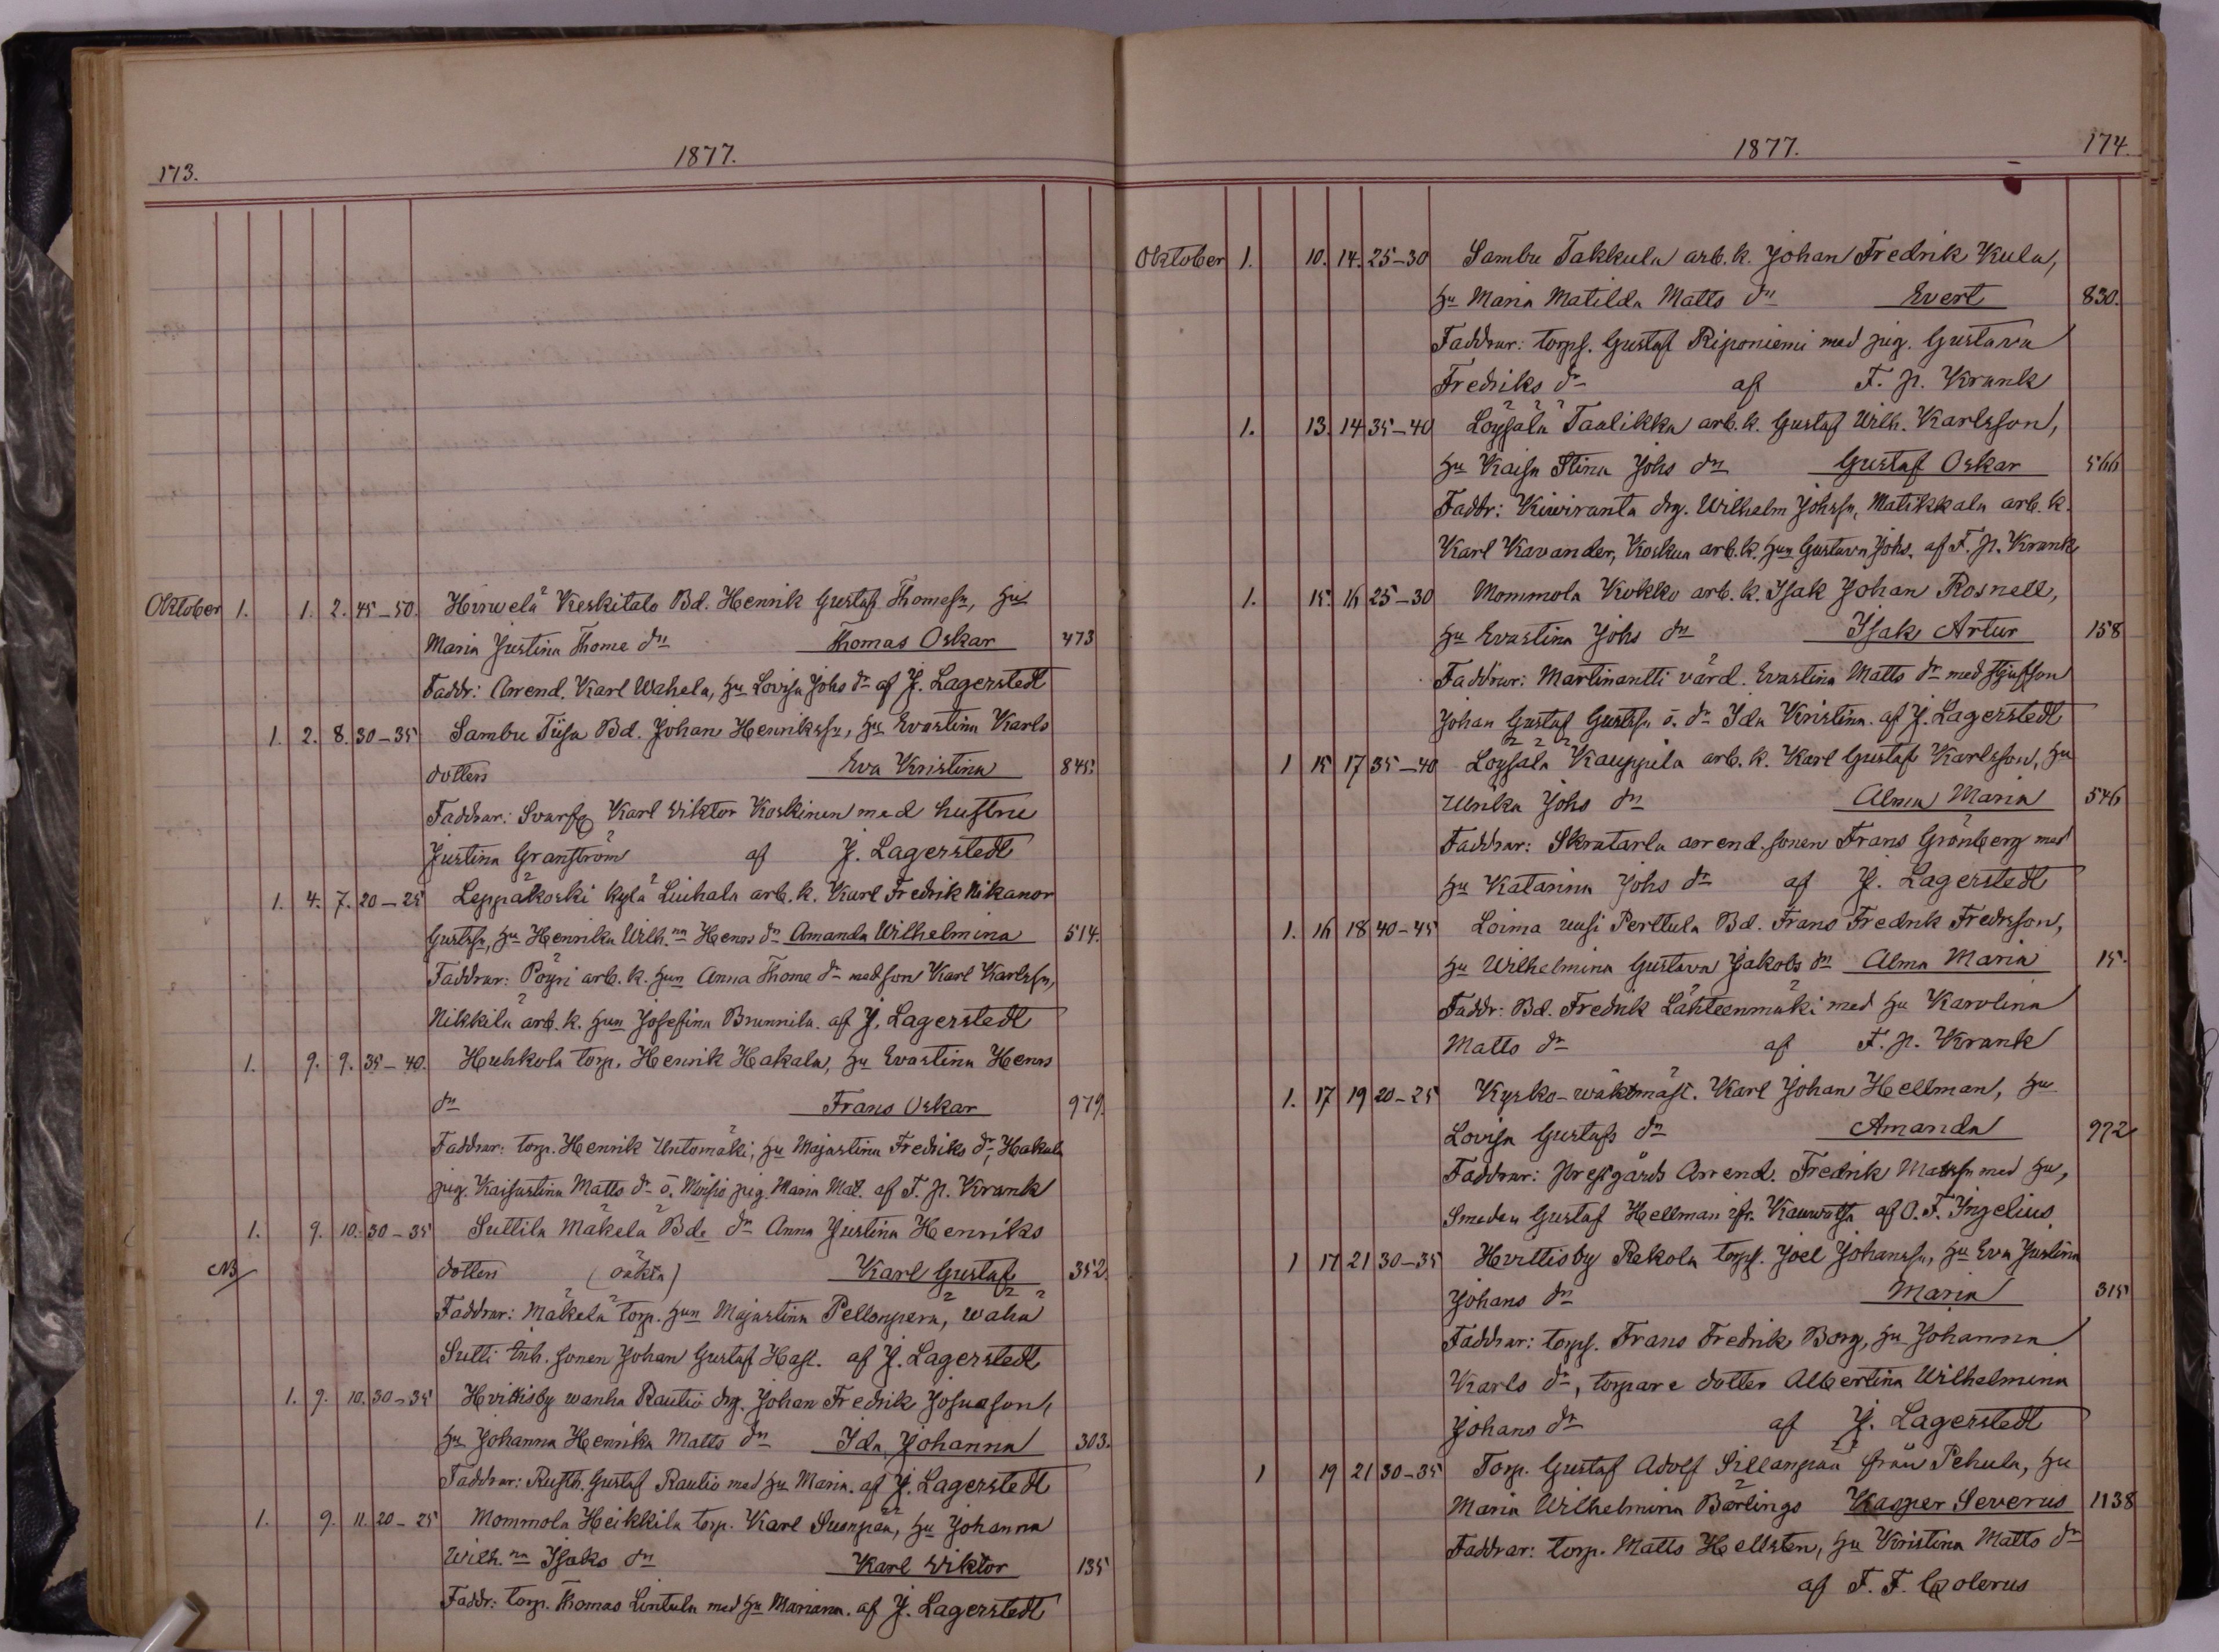 173.
1877.
Oktober 1. 1. 2. 45–50. Hirwelä Keskitalo Bd. Henrik Gustaf Thomesn, hu
Maria Justina Thome dr Thomas Oskar 473
Faddr: Arrend. Karl Wahela, hu Lovisa Johs dr af J. Lagerstedt
1. 2. 8. 30–35 Sambu Tiisa Bd. Johan Henrikssn, hu Evastina Karls
dotter Eva Kristina 845.
Faddrar: Svarf. Karl Viktor Koskinen med hustru
Justina Granström af J. Lagerstedt
1. 4. 7. 20–25 Leppäkoski kylä Liuhala arb. k. Karl Fredrik Nikanor
Gustssn, hu Henrika Wilh.na Henrs dr Amanda Wilhelmina 514.
Faddrar: Pöyri arb. k. hun Anna Thome dr med son Karl Karlssn,
Nikkilä arb. k. hun Josefina Brunnila. af J. Lagerstedt
1. 9. 9. 35–40. Huhkola torp. Henrik Hakala, hu Evastina Henrs
dr Frans Oskar 979.
Faddrar: torp. Henrik Untomäki, hu Majastina Fredriks dr, Hakula
pig. Kaisastina Matts dr o. Moisio pig. Maria Mat. af F. p. Krank
1. 9. 10. 30–35 Suttila Mäkelä Bde dr Anna Justina Henriks
NB dotter (oäkta) Karl Gustaf 352.
Faddrar: Mäkelä torp. hun Majastina Pellonperä, Wähä
Sutti Inh. sonen Johan Gustaf Hast. af J. Lagerstedt
1. 9. 10. 30–35 Hvittisby wanha Rautio drg. Johan Fredrik Josuason,
hu Johanna Henrika Matts dr Ida Johanna 303.
Faddrar: Rusth. Gustaf Rautio med hu Maria. af J. Lagerstedt
1. 9. 11. 20–25 Mommola Heikkila torp. Karl Suonpää, hu Johanna
Wilh.na Isaks dr Karl Viktor 135
Faddr: torp. Thomas Lintula med hu Mariana. af J. Lagerstedt
1877.
174.
Oktober 1. 10. 14. 25–30 Sambu Takkula arb. k. Johan Fredrik Kula,
hu Maria Matilda Matts dr Evert 830.
Faddrar: torps. Gustaf Riponiemi med pig. Gustava
Fredriks dr af F. p. Krank
1. 13. 14 35–40 Löysälä Taalikka arb. k. Gustaf Wilh. Karlsson,
hu Kaisa Stina Johs dr Gustaf Oskar 566
Faddr: Kiwiranta drg. Wilhelm Johssn, Matikkala arb. k.
Karl Kavander, Koskua arb. k. hun Gustava Johs. af F. p. Krank
1. 15. 16 25–30 Mommola Kokko arb. k. Isak Johan Rosnell,
hu Evastina Johs dr Isak Artur 158
Faddrar: Martinantti värd. Evastina Matts dr med
Johan Gustaf Gustssn o. dr Ida Kristina. af J. Lagerstedt
1 15 17 35–40 Löysälä Kauppila arb. k. Karl Gustaf Karlsson, hu
Ulrika Johs dr Alma Maria 546
Faddrar: Skratarla arrend. sonen Frans Grönberg med
hu Katarina Johs dr af J. Lagerstedt
1. 16 18 40–45 Loima uusi Perttula Bd. Frans Fredrik Fredrsson,
hu Wilhelmina Gustava Jakobs dr Alma Maria 15.
Faddr: Bd. Fredrik Lähteenmäki med hu Karolina
Matts dr af F. p. Krank
1. 17 19 20–25 Kyrko-wäktmäst. Karl Johan Hellman, hu
Lovisa Gustafs dr Amanda 972
Faddrar: Prestgårds Arrend. Fredrik Matssn med hu,
Smeden Gustaf Hellman ifr. Kauwatsa af O. F. Ingelius
1 17 21 30–35 Hvittisby Rekola torps. Joel Johanssn, hu Eva Justina
Johans dr Maria 315
Faddrar: torps. Frans Fredrik Borg, hu Johanna
Karls dr, torpare dotter Albertina Wilhelmina
Johans dr af J. Lagerstedt
1 19 21 30–35 Torp. Gustaf Adolf Sillanpää från Pehula, hu
Maria Wilhelmina Bärlings Kasper Severus 1138
Faddrar: torp. Matts Hellsten, hu Kristina Matts dr
af F. F. Colerus